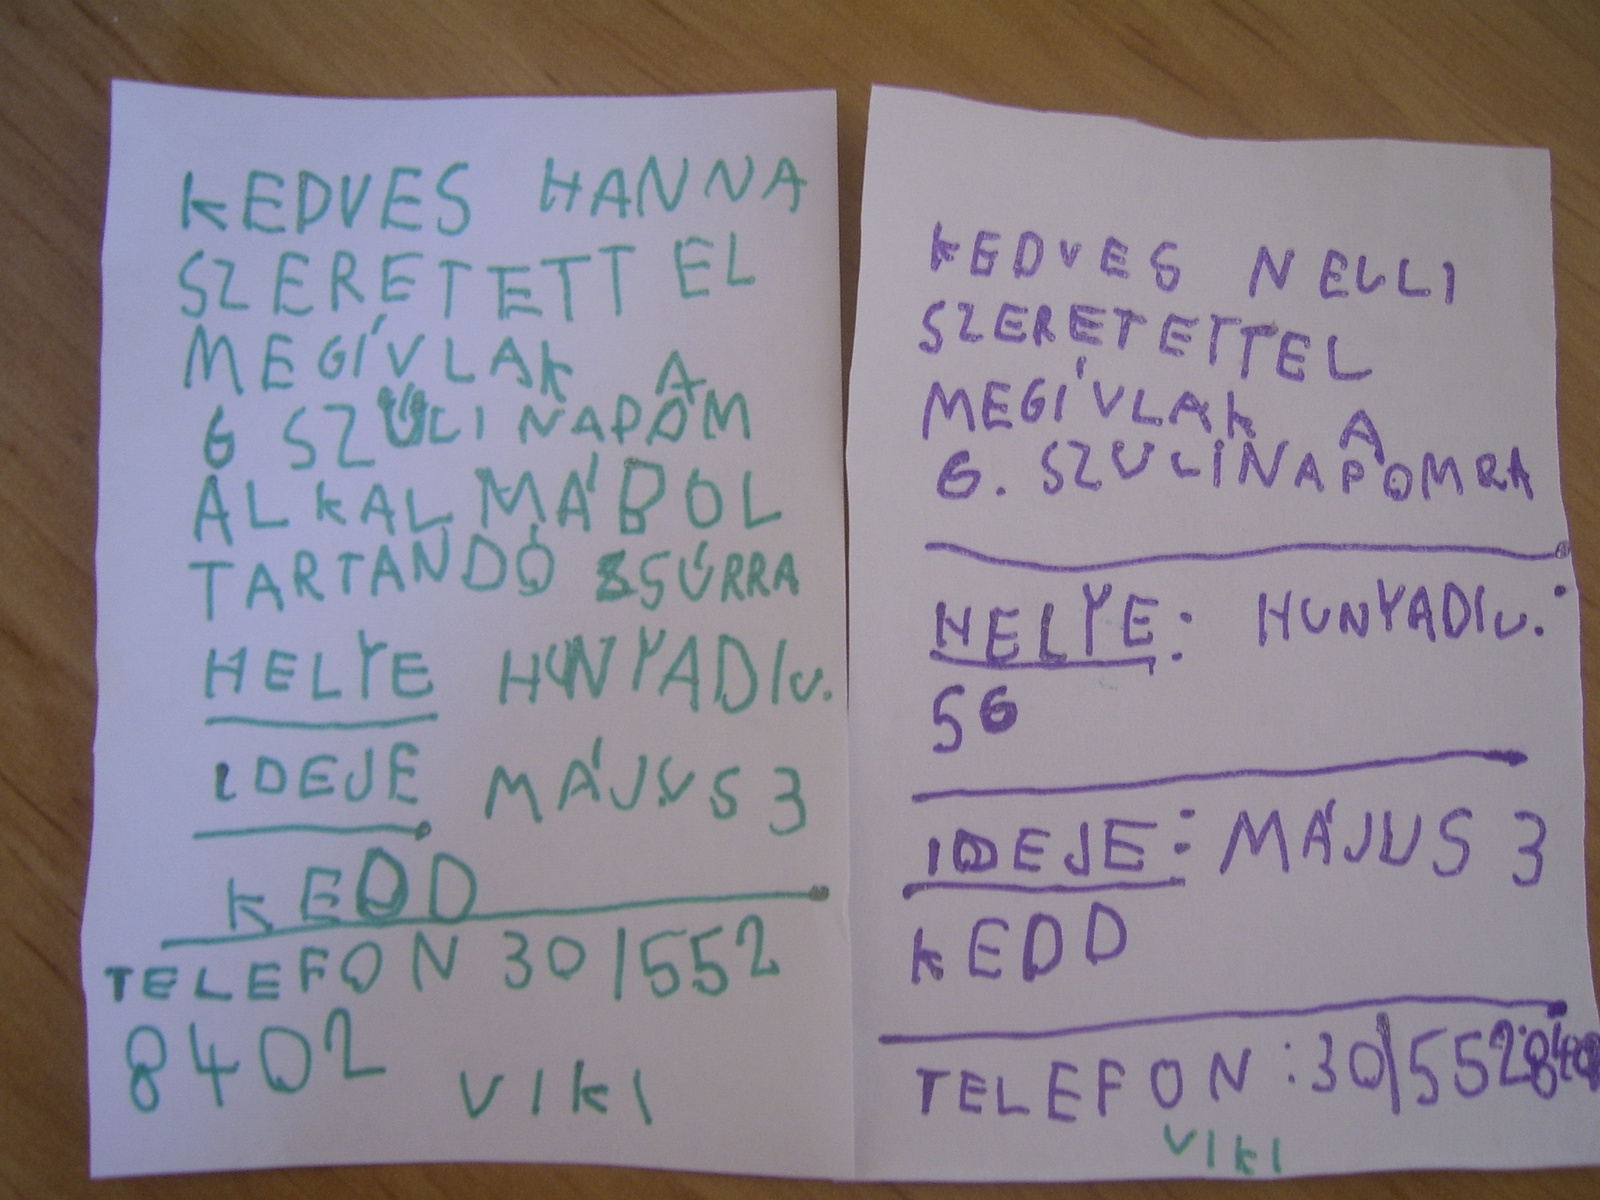 KEDVES HANNA
SZERETETTEL
MEGÍVLAK A
6 SZÜLINAPOM
ALKALMÁBOL
TARTANDÓ ZSÚRRA
HELYE HUNYADI u.
IDEJE MÁJUS 3
KEDD
TELEFON 30/552
8402
VIKI
KEDVES NELLI
SZERETETTEL
MEGÍVLAK A
6. SZULINAPOMRA
HELYE: HUNYADI u.
56
IDEJE: MÁJUS 3
KEDD
TELEFON:30/552
VIKI